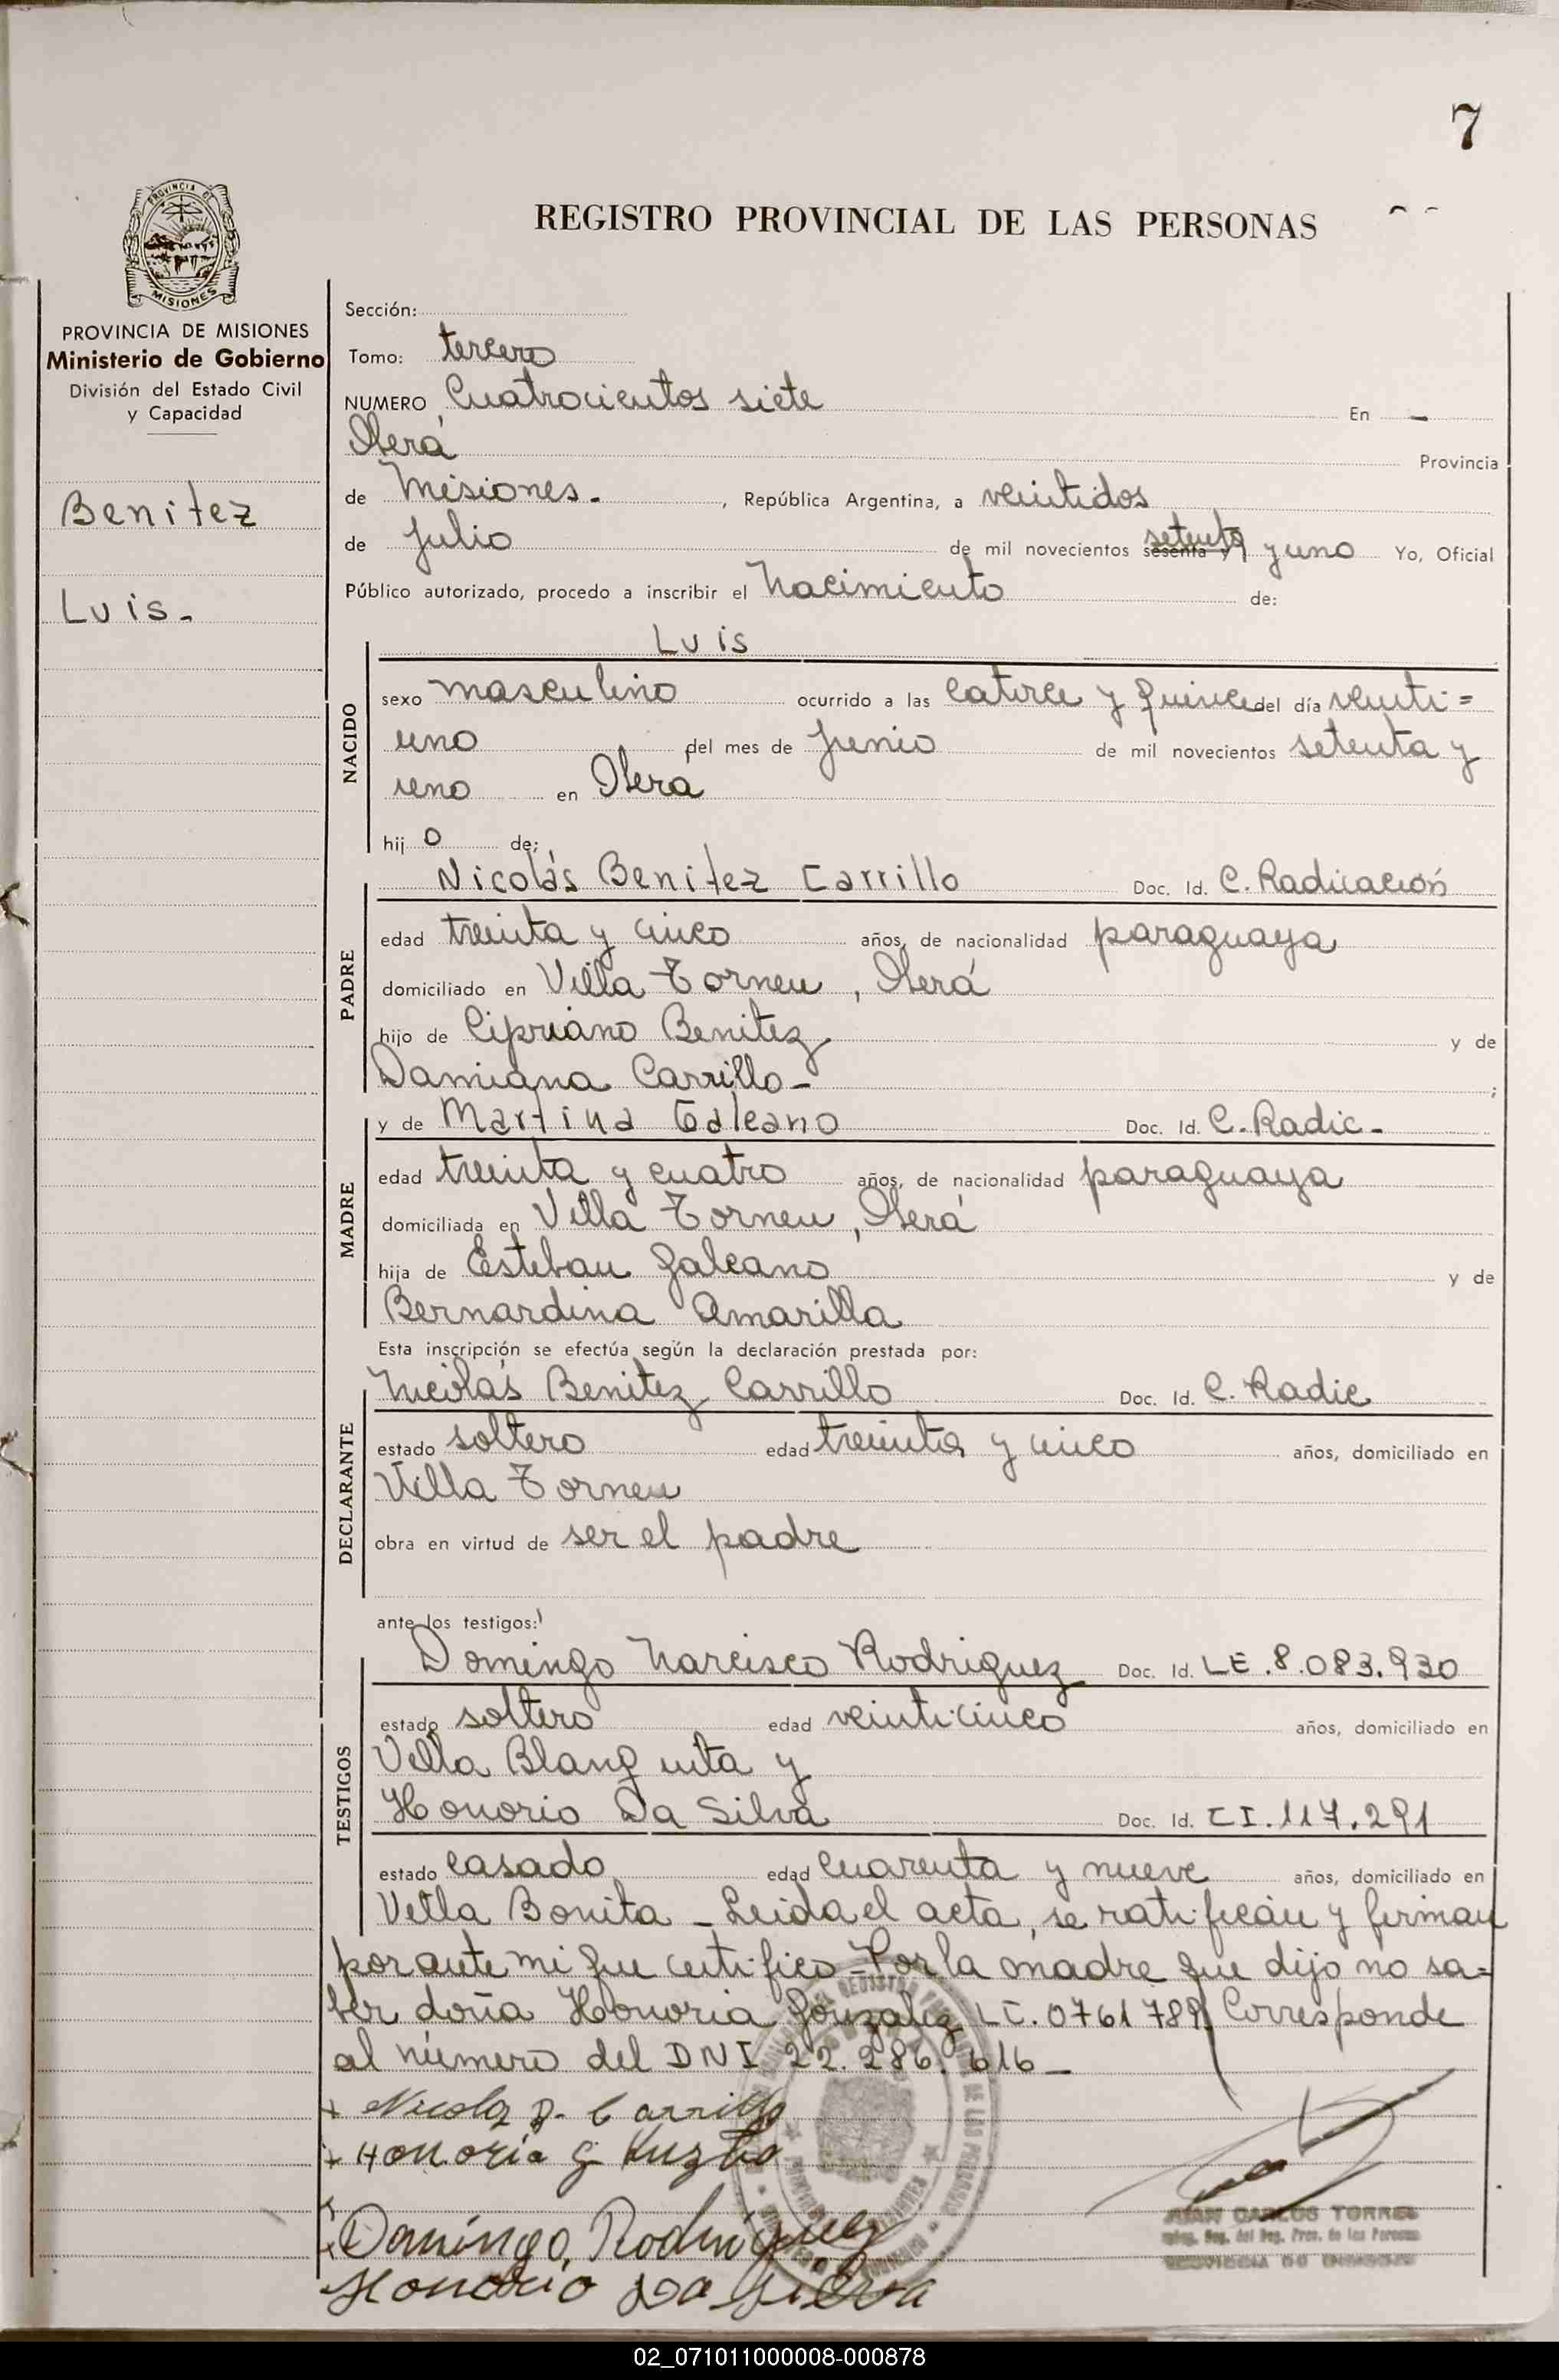 7
REGISTRO PROVINCIAL DE LAS PERSONAS
PROVINCIA DE
MISIONES
PROVINCIA DE MISIONES
Ministerio de Gobierno
División del Estado Civil
y Capacidad
Benitez
Luis.
Sección:
Tomo: tercero
NUMERO Cuatrocientos siete En -
Oberá Provincia
de Misiones. , República Argentina, a veintidos
de Julio de mil novecientos sesenta y setenta y uno Yo, Oficial
Público autorizado, procedo a inscribir el Nacimiento de:
Luis
NACIDO
sexo masculino ocurrido a las catorce y quince del día veinti=
uno del mes de Junio de mil novecientos setenta y
uno en Oberá
hij o de:
Nicolás Benitez Carrillo Doc. Id. C. Radicación
PADRE
edad treinta y cinco años, de nacionalidad paraguaya
domiciliado en Villa Torneu, Oberá
hijo de Cipriano Benitez y de
Damiana Carrillo- ;
y de Martina Galeano Doc. Id. C. Radic-
MADRE
edad treinta y cuatro años, de nacionalidad paraguaya
domiciliada en Villa Torneu, Oberá
hija de Esteban Galeano y de
Bernardina Amarilla
Esta inscripción se efectúa según la declaración prestada por:
Nicolás Benitez Carrillo Doc. Id. C. Radic
DECLARANTE
estado soltero edad treinta y cinco años, domiciliado en
Villa Torneu
obra en virtud de ser el padre
ante los testigos:
Domingo Narciso Rodriguez Doc. Id. LE.8.083.930
TESTIGOS
estado soltero edad veinticinco años, domiciliado en
Villa Blanquita y
Honorio Da Silva Doc. Id. CI.117.291
estado casado edad cuarenta y nueve años, domiciliado en
Villa Bonita - Leida el acta, se ratifican y firman
por ante mi que certifico - Por la madre que dijo no sa=
ber doña Honoria Gonzalez LC. 0761789 Corresponde
al número del DNI 22.286.616-
Nicolas B. Carrillo
Honoria G
Domingo Rodriguez
Honorio Da Silva
JUAN CARLOS TORRES
del Reg. Prov. de las Personas
02_071011000008-000878